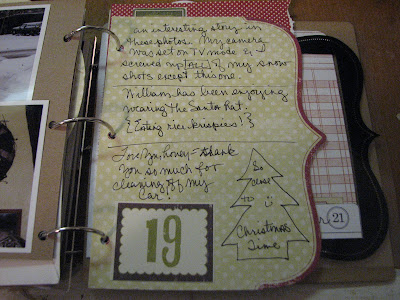 an interesting story in
these photos. My camera
was set on TV mode & I
screwed up [ALL] of my snow
shots except this one.
William has been enjoying
wearing the Santa hat.
{Eating rice krispies!}
honey - thank
you so much for
cleaning off my
car!
So
close
to :)
Christmas
Time
19
21